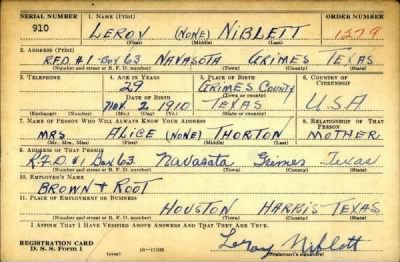 SERIAL NUMBER 1. NAME (Print) ORDER NUMBER
910 LEROY (NONE) NIBLETT 1579
(First) (Middle) (Last)
2. ADDRESS (Print)
R.F.D. #1 BOX 63 NAVASOTA GRIMES TEXAS
(Number and street or R. F. D. number) (Town) (County) (State)
3. TELEPHONE 4. AGE IN YEARS 5. PLACE OF BIRTH 6. COUNTRY OF CITIZENSHIP
29 GRIMES COUNTY
DATE OF BIRTH (Town or county)
NOV. 2 1910 TEXAS U.S.A
(Exchange) (Number) (Mo.) (Day) (Yr.) (State or country)
7. NAME OF PERSON WHO WILL ALWAYS KNOW YOUR ADDRESS 8. RELATIONSHIP OF THAT PERSON
MRS ALICE (NONE) THORTON MOTHER
(Mr., Mrs., Miss) (First) (Middle) (Last)
9. ADDRESS OF THAT PERSON
R.F.D. #1 Box 63 Navasata Grimes Texas
(Number and street or R. F. D. number) (Town) (County) (State)
10. EMPLOYER'S NAME
BROWN + ROOT
11. PLACE OF EMPLOYMENT OR BUSINESS
HOUSTON HARRIS TEXAS
(Number and street or R. F. D. number) (Town) (County) (State)
I AFFIRM THAT I HAVE VERIFIED ABOVE ANSWERS AND THAT THEY ARE TRUE.
REGISTRATION CARD
D. S. S. Form 1
Leroy Niblett